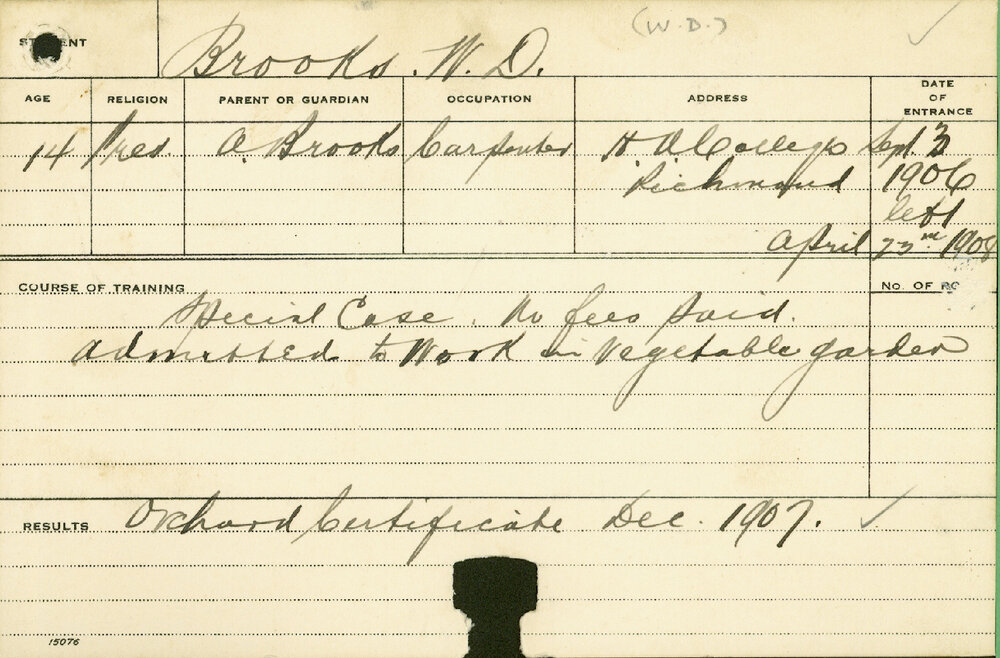 (W.D.)
STUDENT Brooks. W. D.
AGE RELIGION PARENT OR GUARDIAN OCCUPATION ADDRESS DATE OF ENTRANCE
14 Pres. A. Brooks Carpenter H. A. College Sept. 3
Richmond 1906
left
April 23rd 1908
COURSE OF TRAINING No. OF
Special Case. No fees paid.
Admitted to Work in Vegetable garden
RESULTS Orchard Certificate Dec. 1907.
15076